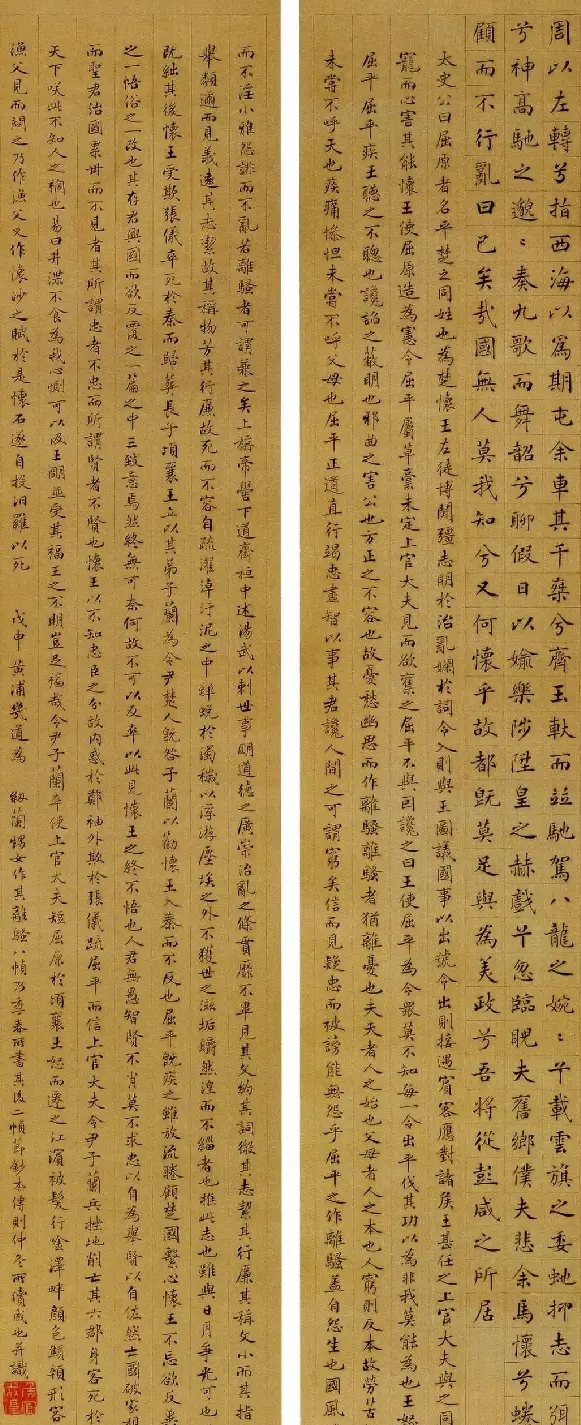 周以左轉兮指西海以為期屯余車其千椉兮齊玉軑而並馳駕八龍之婉〻兮載雲旗之委蛇抑志而弭
兮神高馳之邈〻奏九歌而舞韶兮聊假日以媮樂陟陞皇之赫戲兮忽臨睨夫舊鄉僕夫悲余馬懷兮蜷
顧而不行亂曰已矣哉國無人莫我知兮又何懷乎故都既莫足與為美政兮吾將從彭咸之所居
太史公曰屈原者名平楚之同姓也為楚懷王左徒博聞彊志明於治亂嫻於詞令入則與王圖議國事以出號令出則接遇賓客應對諸矦王甚任之上官大夫與之同
寵而心害其能懷王使屈原造為憲令屈平屬草藁未定上官大夫見而欲奪之屈平不與因讒之曰王使屈平為令眾莫不知每一令出平伐其功以為非我莫能為也王怒
屈平屈平疾王聽之不聰也讒諂之蔽明也邪曲之害公也方正之不容也故憂愁幽思而作離騷離騷者猶離憂也夫天者人之始也父母者人之本也人窮則反本故勞苦
未嘗不呼天也疾痛慘怛未嘗不呼父母也屈平正道直行竭忠盡智以事其君讒人間之可謂窮矣信而見疑忠而被謗能無怨乎屈平之作離騷蓋自怨生也國風
而不淫小雅怨誹而不亂若離騷者可謂兼之矣上稱帝嚳下道齊桓中述湯武以刺世事明道德之廣崇治亂之條貫靡不畢見其文約其詞微其志絜其行廉其稱文小而其指
舉類邇而見義遠其志絜故其稱物芳其行廉故死而不容自疏濯淖汙泥之中蟬蛻於濁穢以浮游塵埃之外不獲世之滋垢皭然涅而不緇者也推此志也雖與日月爭光可也
既絀其後懷王受欺張儀卒死於秦而歸葬長子頃襄王立以其弟子蘭為令尹楚人既咎子蘭以勸懷王入秦而不反也屈平既疾之雖放流睠顧楚國繫心懷王不忘欲反
之一悟俗之一改也其存君興國而欲反覆之一篇之中三致意焉然終無可奈何故不可以反卒以此見懷王之終不悟也人君無愚智賢不肖莫不求忠以自為舉賢以自佐然亡國破家相
而聖君治國累世而不見者其所謂忠者不忠而所謂賢者不賢也懷王以不知忠臣之分故內惑於鄭袖外欺於張儀疏屈平而信上官大夫令尹子蘭兵挫地削亡其六郡身客死於
天下咲此不知人之禍也易曰井渫不食為我心惻可以汲王明並受其福王之不明豈足福哉令尹子蘭卒使上官大夫短屈原於頃襄王怒而遷之江濱被髮行唫澤畔顏色顦顇形容
漁父見而問之乃作漁父又作懷沙之賦於是懷石遂自投汨羅以死
戊申黃浦幾道為 紉蘭甥女作其離騷八幀乃季春所書其後二幀節鈔本傳則仲冬所續成也并識